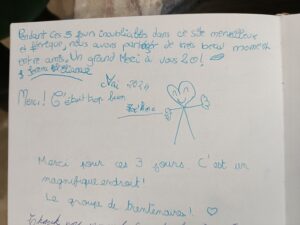 Pendant ces 3 jours inoubliables dans ce site merveilleux
et féérique, nous avons partagé de très beau moment
entre amis. Un grand Merci à vous 20!
Mai 2024
Merci! C'était trop bien
Merci pour ces 3 jours. C'est un
magnifique endroit!
Le groupe de trentenaires! ♡